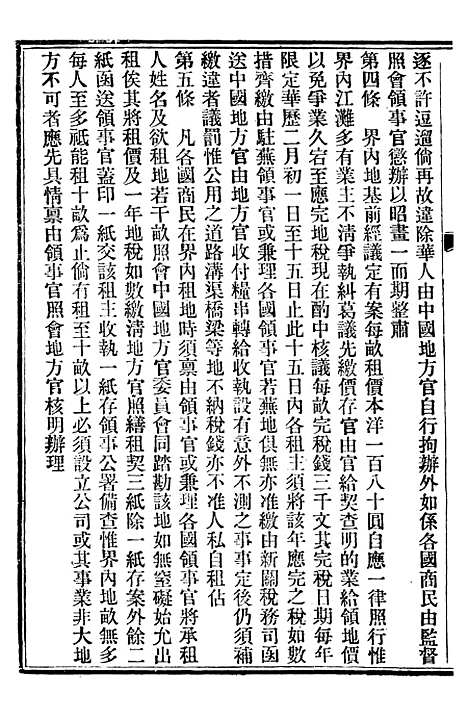 逐不許逗遛倘再故違除華人由中國地方官自行拘辦外如係各國商民由監督
照會領事官懲辦以昭畫一而期整肅
第四條　界內地基前經議定有案每畝租價本洋一百八十圓自應一律照行惟
界內江灘多有業主不清爭執糾葛議先繳價存官由官給契查明的業給領地價
以免爭業久宕至應完地稅現在酌中核議每畝完稅錢三千文其完稅日期每年
限定華歷二月初一日至十五日止此十五日內各租主須將該年應完之稅如數
措齊繳由駐蕪領事官或兼理各國領事官若蕪地俱無亦准繳由新關稅務司函
送中國地方官由地方官收付糧串轉給收執設有意外不測之事事定後仍須補
繳違者議罰惟公用之道路溝渠橋梁等地不納稅鈔亦不准人私自租佔
第五條　凡各國商民在界內租地時須稟由領事官或兼理各國領事官將承租
人姓名及欲租地若干畝照會中國地方官委員會同踏勘該地如無窒礙始允出
租俟其將租價及一年地稅如數繳清地方官照繕租契三紙除一紙存案外餘二
紙函送領事官蓋印一紙交該租主收執一紙存領事公署備查惟界內地畝無多
每人至多祇能租十畝為止倘有租至十畝以上必須設立公司或其事業非大地
方不可者應先具情稟由領事官照會地方官核明辦理